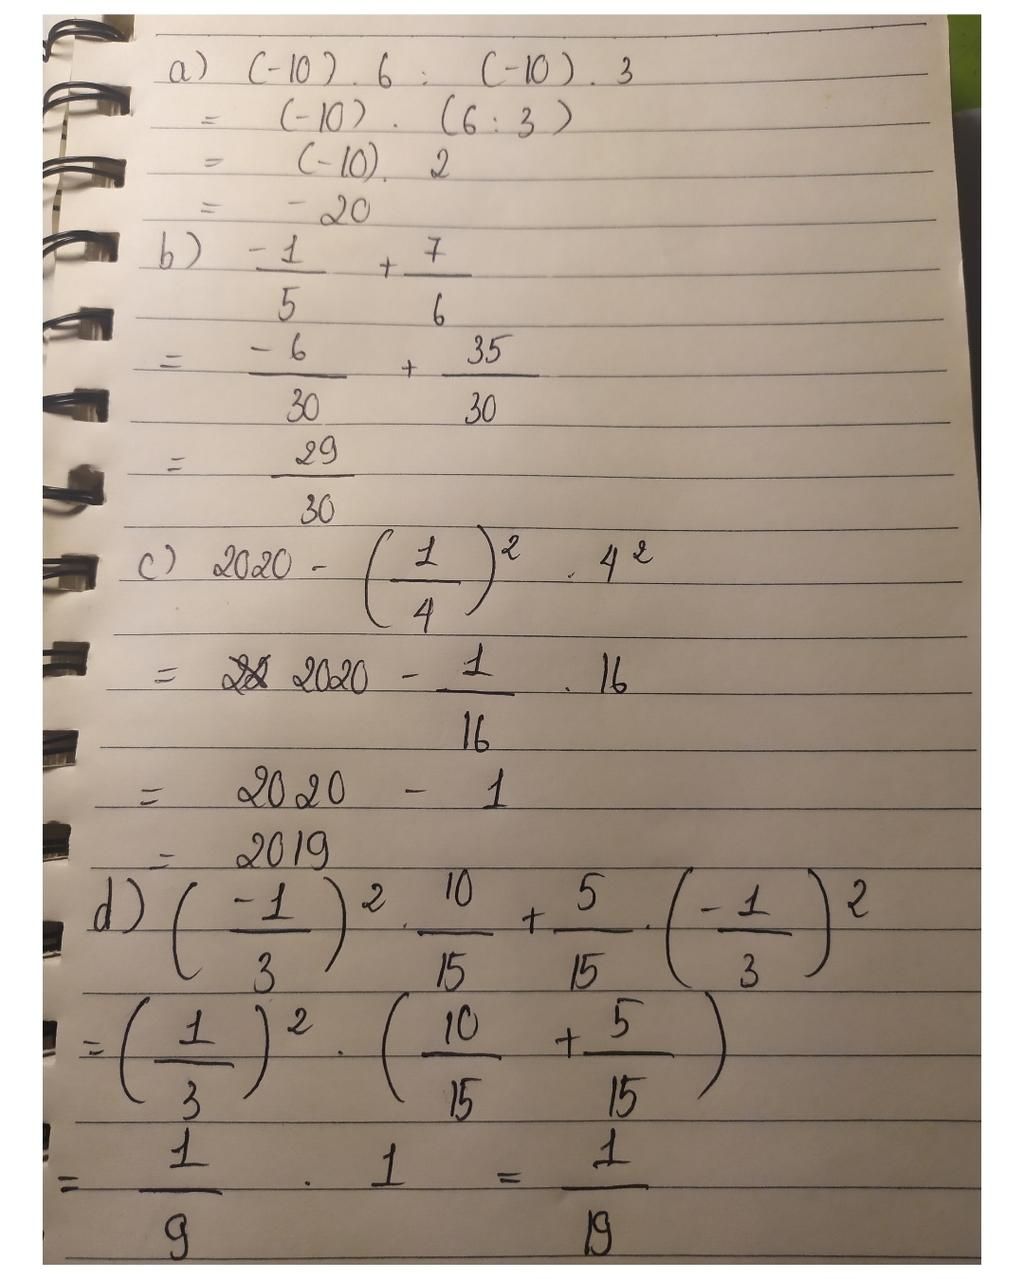 a) (-10) . 6 : (-10) . 3
= (-10) . (6 : 3)
= (-10) . 2
= - 20
b) -1/5 + 7/6
= -6/30 + 35/30
= 29/30
c) 2020 - (1/4)² . 4²
= 2020 - 1/16 . 16
= 2020 - 1
= 2019
d) (-1/3)² . 10/15 + 5/15 . (-1/3)²
= (1/3)² . (10/15 + 5/15)
= 1/9 . 1 = 1/19